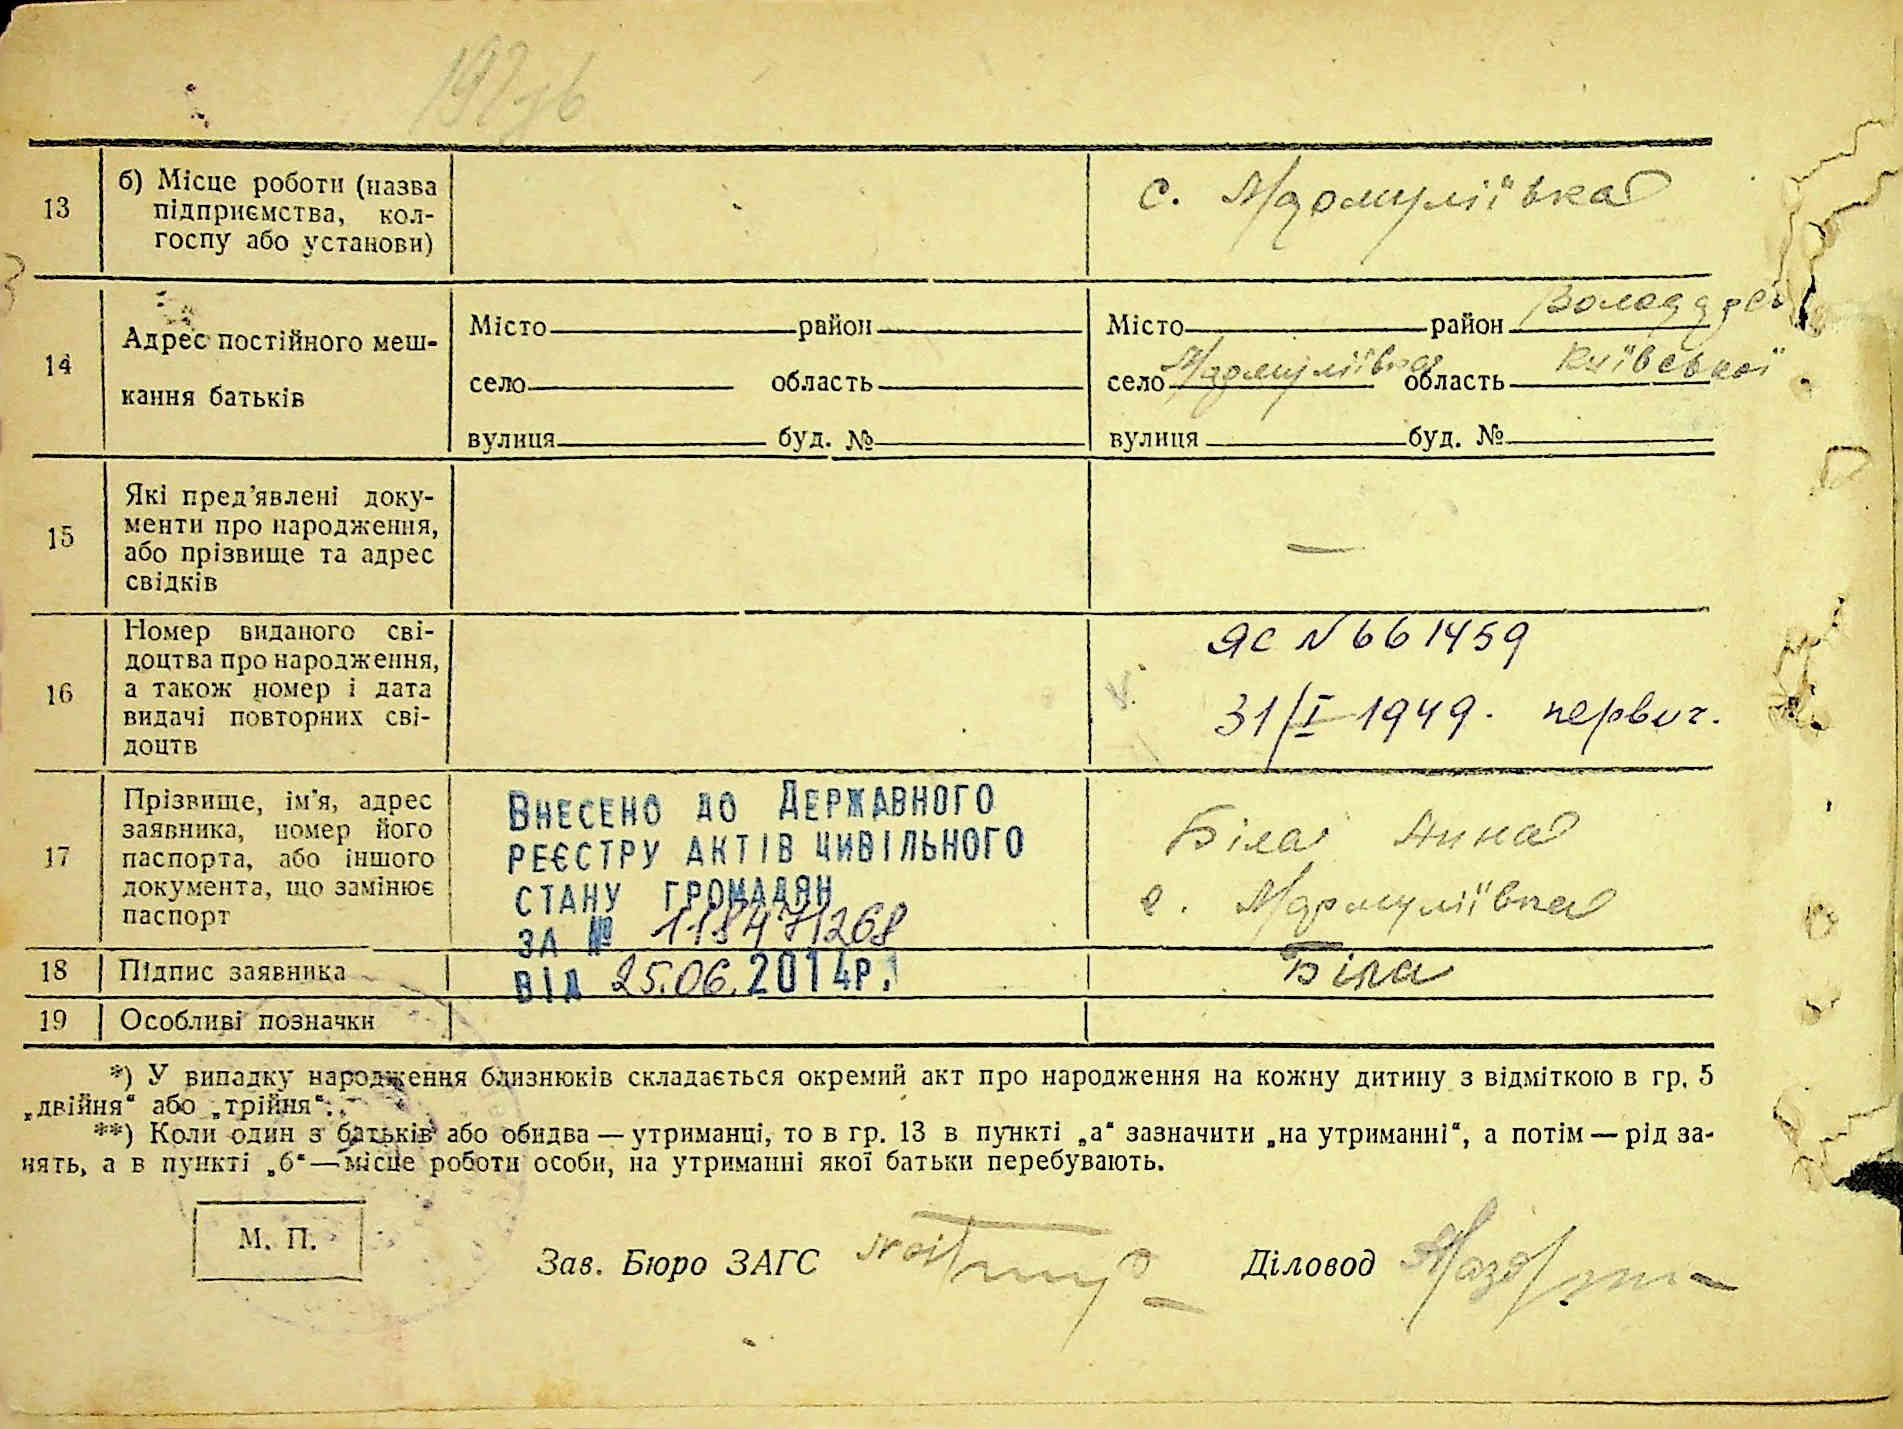 13
б) Місце роботи (назва
підприємства, кол-
госпу або установи)
с.
14
Адрес постійного меш-
кання батьків
Місто район
село область
вулиця буд. №
Місто район
село область Київської
вулиця буд. №
15
Які пред’явлені доку-
менти про народження,
або прізвище та адрес
свідків
—
16
Номер виданого сві-
доцтва про народження,
а також номер і дата
видачі повторних сві-
доцтв
ЯС N 661459
31/I 1949. первич.
17
Прізвище, ім’я, адрес
заявника, номер його
паспорта, або іншого
документа, що замінює
паспорт
ВНЕСЕНО ДО ДЕРЖАВНОГО
РЕЄСТРУ АКТІВ ЦИВІЛЬНОГО
СТАНУ ГРОМАДЯН
ЗА № 118471268
ВІД 25.06.2014Р.
Біла Анна
с.
18
Підпис заявника
Біла
19
Особливі позначки
*) У випадку народження близнюків складається окремий акт про народження на кожну дитину з відміткою в гр. 5
„двійня“ або „трійня“.
**) Коли один з батьків або обидва — утриманці, то в гр. 13 в пункті „а“ зазначити „на утриманні“, а потім — рід за-
нять, а в пункті „б“ — місце роботи особи, на утриманні якої батьки перебувають.
М. П.
Зав. Бюро ЗАГС
Діловод